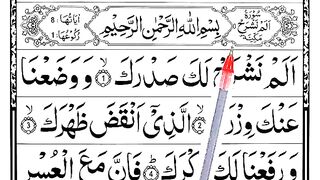 سُوْرَةُ اَلَمْ نَشْرَحْ مَكِّيَّةٌ بِسْمِ اللّٰهِ الرَّحْمٰنِ الرَّحِيْمِ اٰيَاتُهَا ٨ رُكُوْعُهَا ١
اَلَمْ نَشْرَحْ لَكَ صَدْرَكَ ۝١ وَوَضَعْنَا
عَنْكَ وِزْرَكَ ۝٢ الَّذِيْٓ اَنْقَضَ ظَهْرَكَ ۝٣
وَرَفَعْنَا لَكَ ذِكْرَكَ ۝٤ فَاِنَّ مَعَ الْعُسْرِ